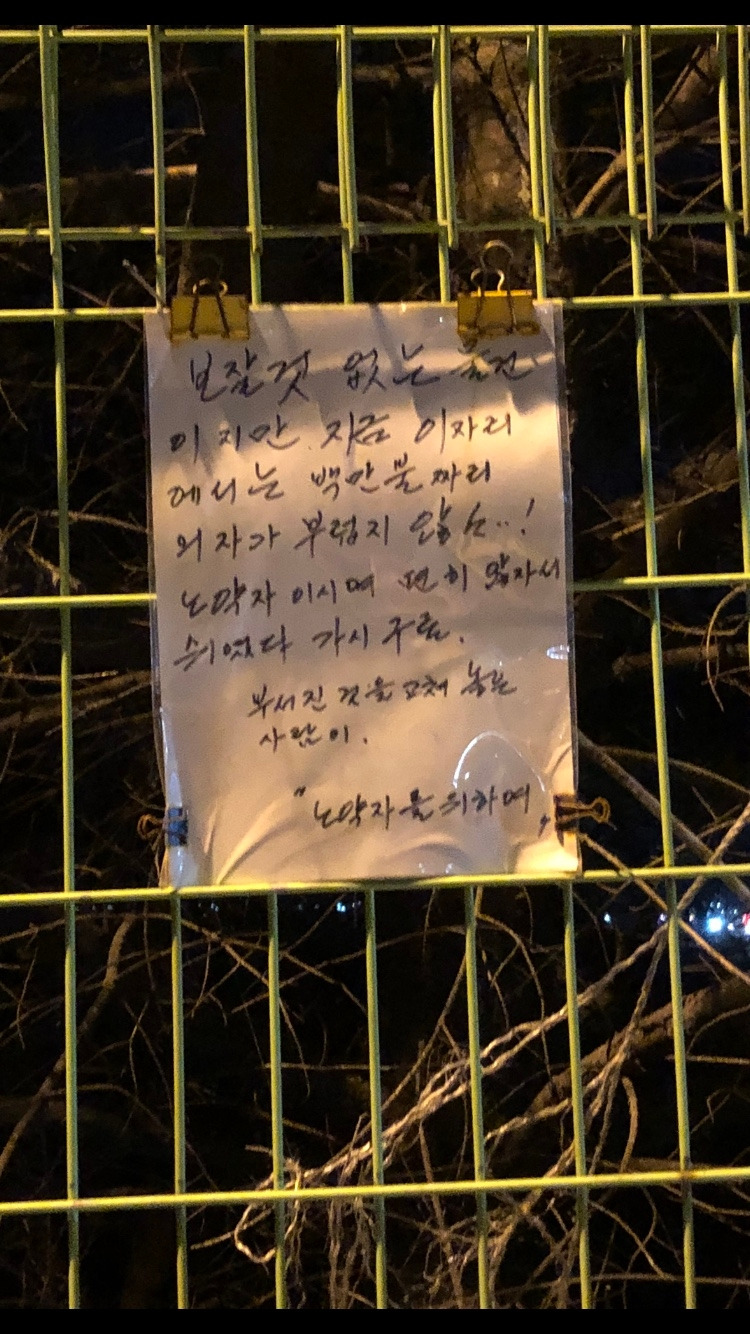 보잘것 없는 물건
이지만 지금 이자리
에서는 백만불짜리
의자가 부럽지 않소..!
노약자 이시며 편히 앉자서
쉬였다 가시구료.
부서진 것을 고쳐 놓은
사람이.
"노약자를 위하여"